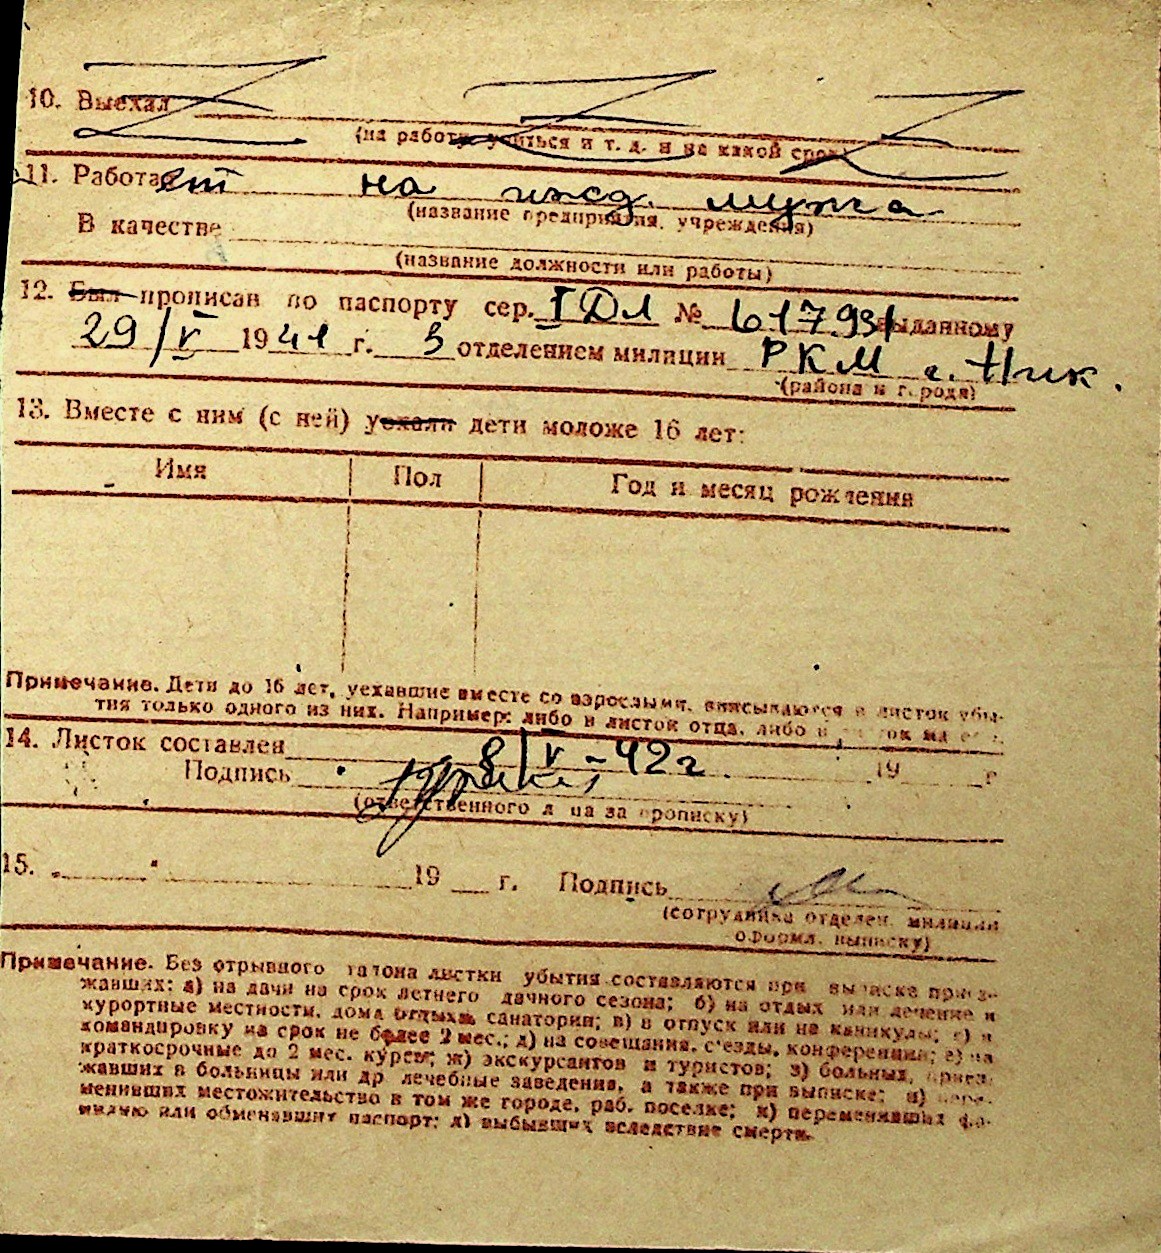 10. Выехал
(на работу, учиться и т. д. и на какой срок)
11. Работает на ижд. мужа
(название предприятия, учреждения)
В качестве
(название должности или работы)
12. Был прописан по паспорту сер. I ДЛ № 617931 выданному
29/V 1941 г. 3 отделением милиции РКМ г. Ник.
(района и города)
13. Вместе с ним (с ней) уехали дети моложе 16 лет:
Имя Пол Год и месяц рождения
Примечание. Дети до 16 лет, уехавшие вместе со взрослыми, вписываются в листок убы-
тия только одного из них. Например: либо в листок отца, либо в листок
14. Листок составлен 8/V-42 г. 19 г
Подпись
(ответственного лица за прописку)
15. 19 г. Подпись
(сотрудника отделен. милиции
оформл. выписку)
Примечание. Без отрывного талона листки убытия составляются при выписке приез-
жавших: а) на дачи на срок летнего дачного сезона; б) на отдых или лечение в
курортные местности, дома отдыха, санатории; в) в отпуск или на каникулы; г) в
командировку на срок не более 2 мес.; д) на совещания, съезды, конференции; е) на
краткосрочные до 2 мес. курсы; ж) экскурсантов и туристов; з) больных, приез-
жавших в больницы или др лечебные заведения, а также при выписке; и) пере-
менивших местожительство в том же городе, раб. поселке; к) переменивших фа-
милию или обменявших паспорт; л) выбывших вследствие смерти.